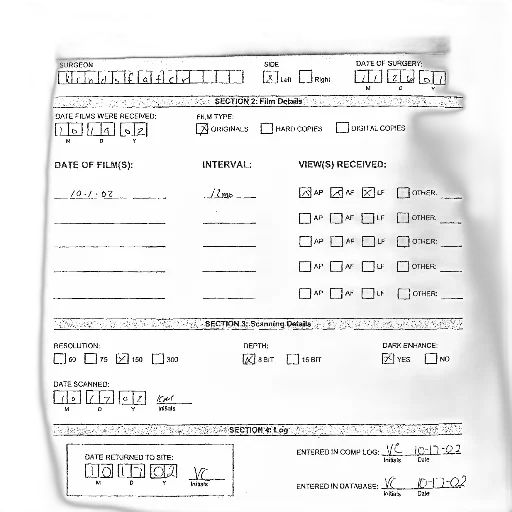 SURGEON SIDE DATE OF SURGERY:
Left Right
M D Y
SECTION 2: Film Details
DATE FILMS WERE RECEIVED: FILM TYPE:
10 19 02 X ORIGINALS HARD COPIES DIGITAL COPIES
M D Y
DATE OF FILM(S): INTERVAL: VIEW(S) RECEIVED:
10.1.02 12mo X AP X AF X LF OTHER:
AP AF LF OTHER:
AP AF LF OTHER:
AP AF LF OTHER:
AP AF LF OTHER:
SECTION 3: Scanning Details
RESOLUTION: DEPTH: DARK ENHANCE:
60 75 X 150 300 X 8 BIT 16 BIT X YES NO
DATE SCANNED:
10 17 02
M D Y Initials
SECTION 4: Log
DATE RETURNED TO SITE:
10 17 02 VC
M D Y Initials
ENTERED IN COMP LOG: VC 10-17-02
Initials Date
ENTERED IN DATABASE: VC 10-17-02
Initials Date